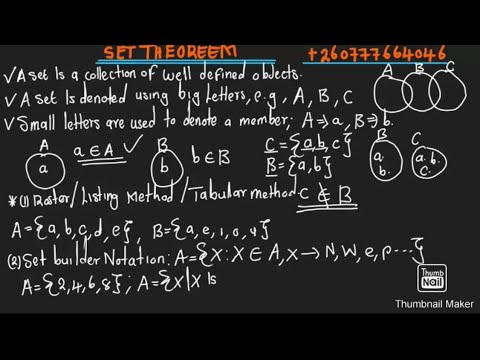 SET THEOREEM +260777664046
✓A set Is a collection of well defined objects.
✓A set Is denoted using big Letters, e.g, A, B, C
✓Small letters are used to denote a member; A⇒a, B⇒b.
A B C
A a a∈A ✓ B b b∈B C={a,b,c}
B={a,b}
B a. b. C a.b. c.
*(1) Roster/Listing Method/Tabular method C ⊄ B
A={a,b,c,d,e}, B={a,e,i,o,u}
(2) Set builder Notation; A={X:X∈A, x→N,W,e,p----}
A={2,4,6,8}; A={X|X Is
Thumb
Nail
Thumbnail Maker